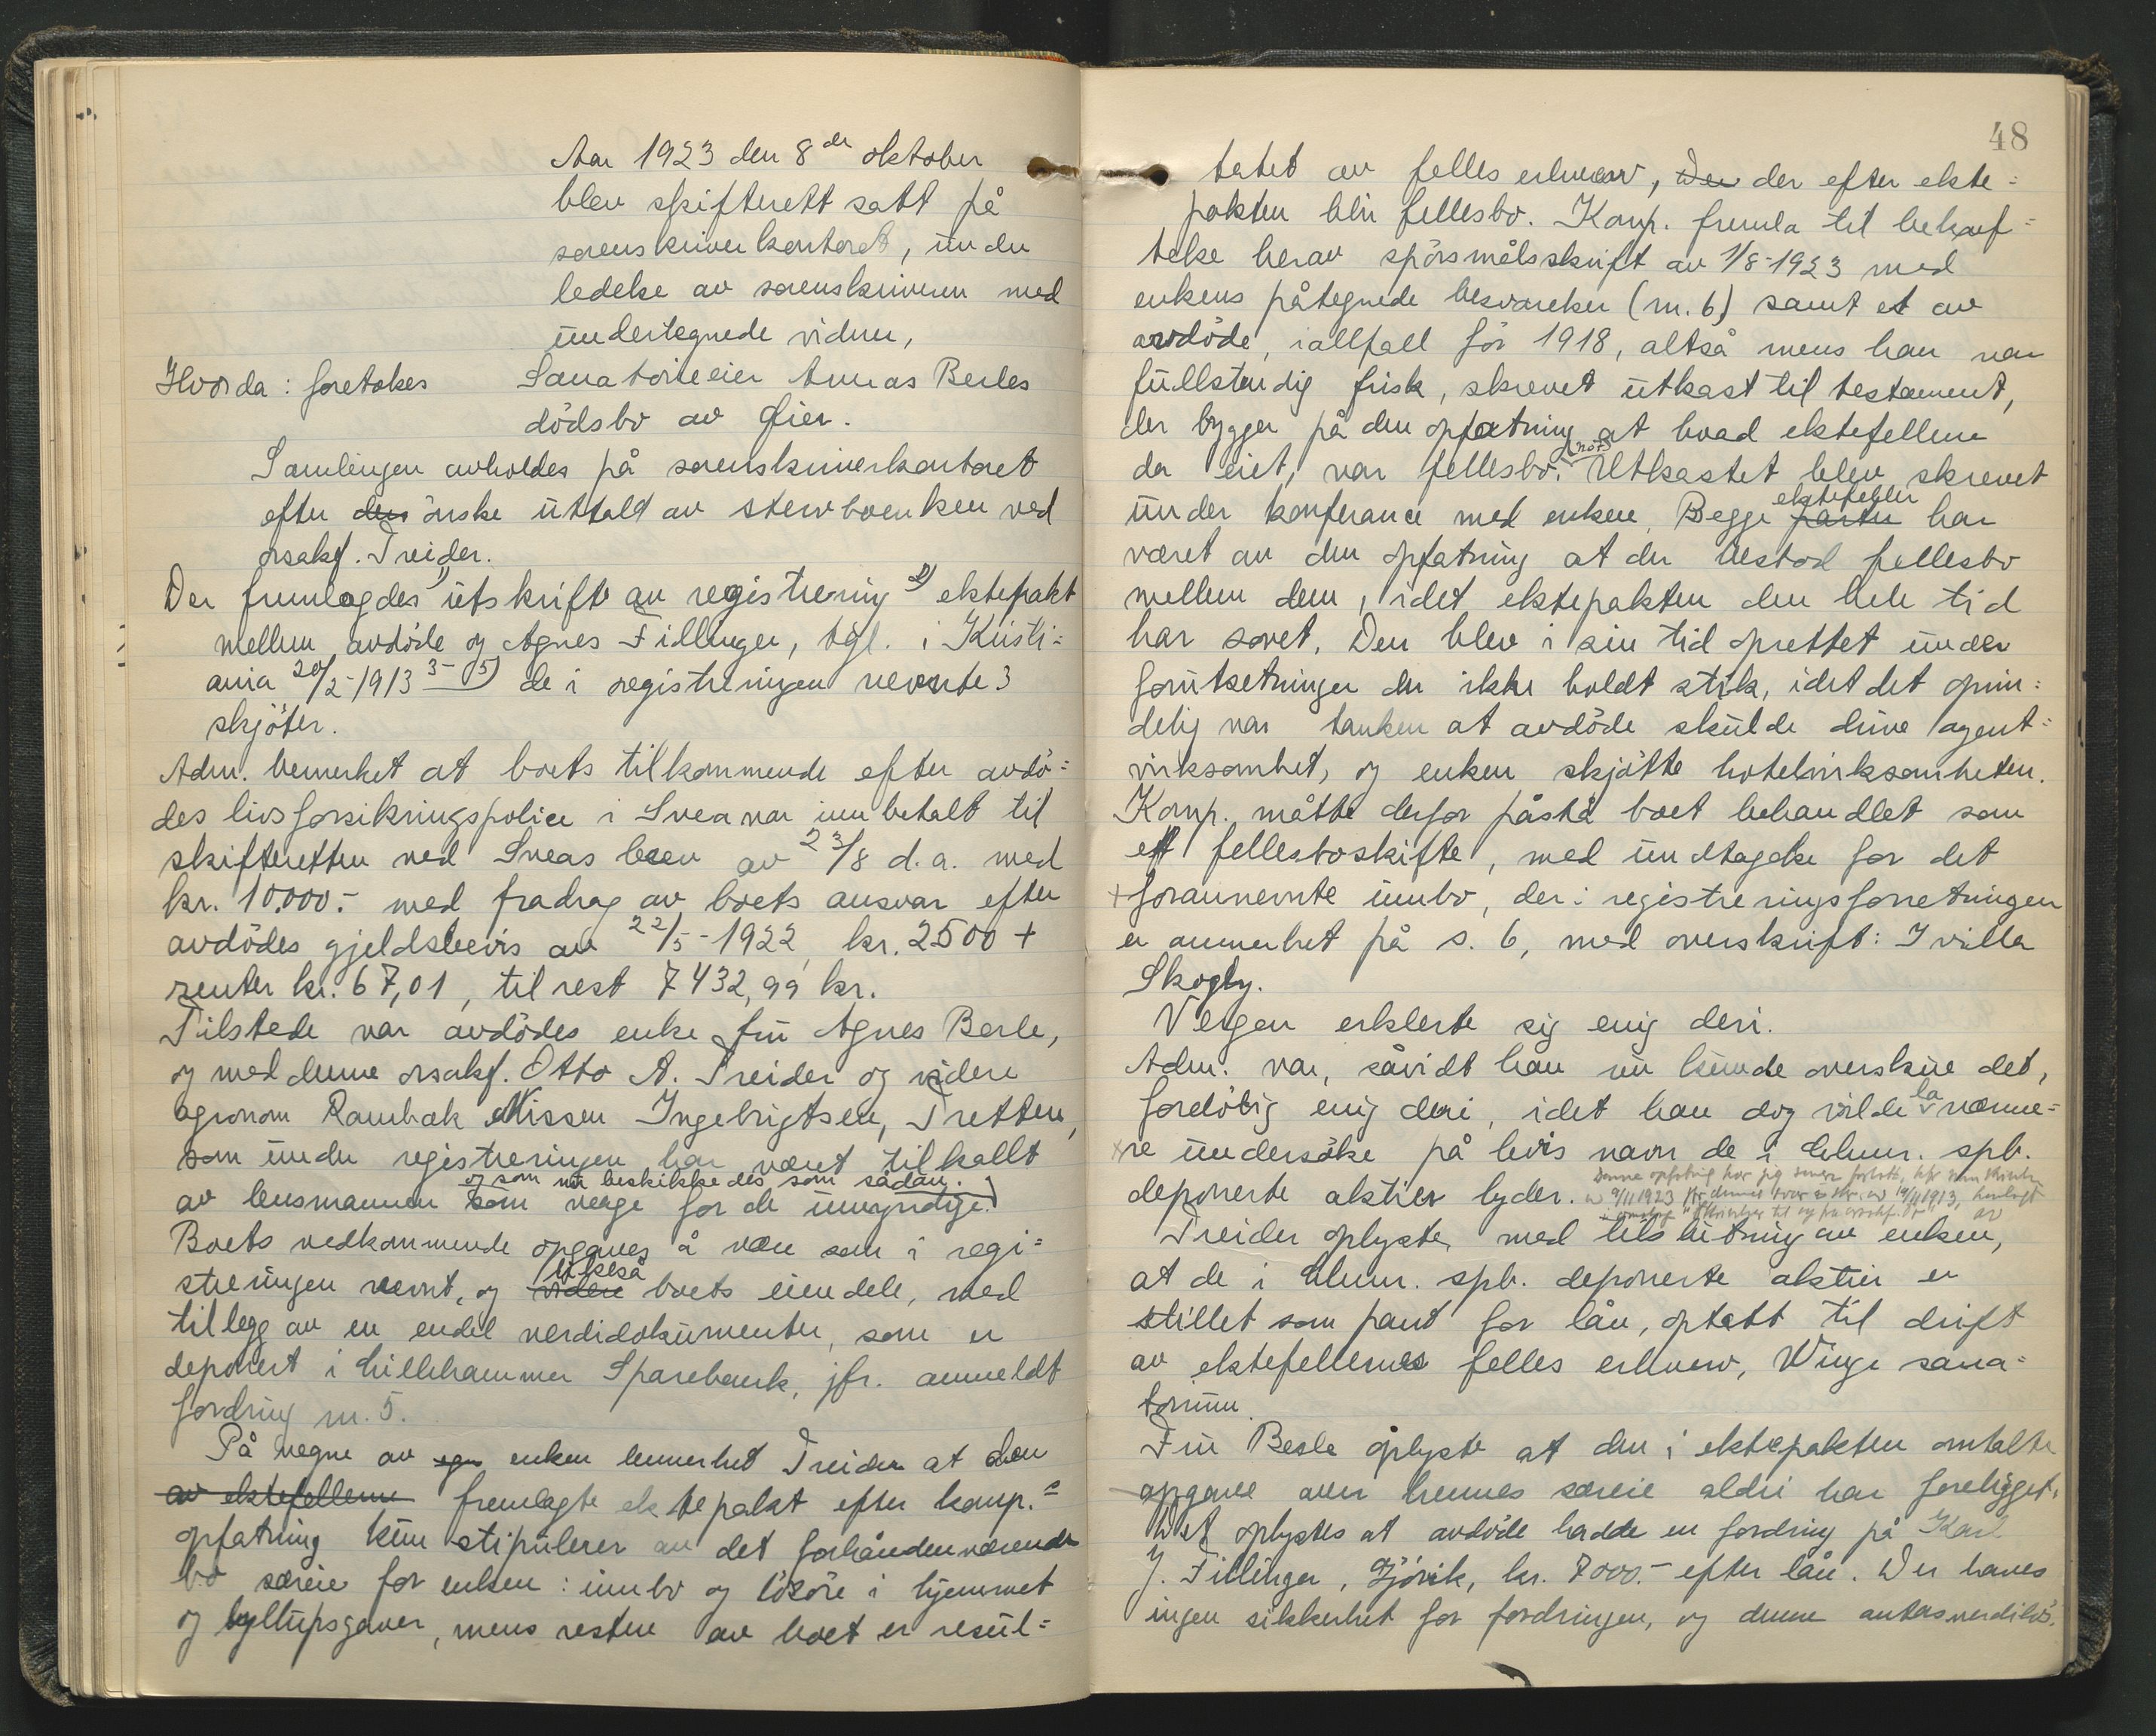 Aar 1923 den 8de oktober
blev skifterett satt på
sorenskriverkontoret, under
ledelse av sorenskriveren med
undertegnede vidner,
Hvorda: foretokes Sanatorieeier Andreas Berles
dödsbo av Öier.
Samlingen avholdes på sorenskriverkontoret
efter den önske uttalt av stervboenken ved
orsakf. Treider.
Der fremlagdes 1) utskrift av registrering 2) ektepakt
mellem avdöde og Agnes Fillinger, tgl. i Kristi=
ania 20/2-1913 3-5) de i registreringen nevnte 3
skjöter.
Adm. bemerket at boets tilkommende efter avdö=
des livsforsikringspolice i Svea var innbetalt til
skifteretten ved Sveas brev av 23/8 d.a. med
kr. 10.000.- med fradrag av boets ansvar efter
avdödes gjeldsbevis av 22/5-1922, kr. 2500 +
renter kr. 67,01, til rest 7432,99 kr.
Tilstede var avdödes enke fru Agnes Berle,
og med denne orsakf. Otto A. Treider og videre
agronom Rambæk Nissen Ingebrigtsen, Tretten,
som under registreringen har været tilkallt
og som nu beskikkedes som sådan.
av lensmannen som verge for de umyndige.
Boets vedkommende opgaves å være som i regi=
streringen nevnt, og videre likeså boets eiendele, med
tillegg av en endel verdidokumenter, som er
deponert i Lillehammer Sparebank, jfr. anmeldt
fordring nr. 5.
På vegne av egn enken bemerket Treider at den
av ektefellerne fremlagte ektepakt efter komp.s
opfatning kun stipulerer av det forhåndenværende
bo særeie for enken: innbo og lösöre i hjemmet
og bryllupsgaver, mens resten av boet er resul=
48
tatet av felles erhverv, Den der efter ekte=
pakten blir fellesbo. Komp. fremla til bekref=
telse herav spörsmålsskrift av 1/8-1923 med
enkens påtegnede besvarelser (nr. 6) samt et av
avdöde, iallfall för 1918, altså mens han var
fullstendig frisk, skrevet utkast til testament,
der bygger på den opfatning at hvad ektefellene
da eiet, var fellesbo. (nr 7) Utkastet blev skrevet
under konferance med enken. Begge parter ektefeller har
været av den opfatning at der bestod fellesbo
mellem dem, idet ektepakten den hele tid
har sovet. Den blev i sin tid oprettet under
forutsetninger der ikke holdt stik, idet det oprin=
delig var tanken at avdöde skulde drive agent=
virksomhet, og enken skjötte hotelvirksomheten.
Komp. måtte derfor påstå boet behandlet som
et fellesboskifte, med undtagelse for det
+ forannevnte innbo, der i registreringsforretningen
er anmerket på s. 6, med overskrift: I villa
Skogly.
Vergen erklerte sig enig deri.
Adm. var, såvidt han nu kunde overskue det,
foreløbig enig deri, idet han dog vilde la nærme=
re undersöke på hvis navn de i Lhmr. spb.
deponerte aktier lyder. Denne opfatning har jeg senere forlatt,
Treider oplyste, med tilslutning av enken,
at de i Lhmr. spb. deponerte aktier er
stillet som pant for lån, optatt til drift
av ektefellernes felles erhverv, Winge sana=
torium.
Fru Berle oplyste at den i ektepakten omtalte
opgave over hennes særeie aldri har foreligget.
Det oplystes at avdöde hadde en fordring på Karl
J. Fillinger, Gjövik, kr. 7000.- efter lån. Der haves
ingen sikkerhet for fordringen, og denne antas verdilös.